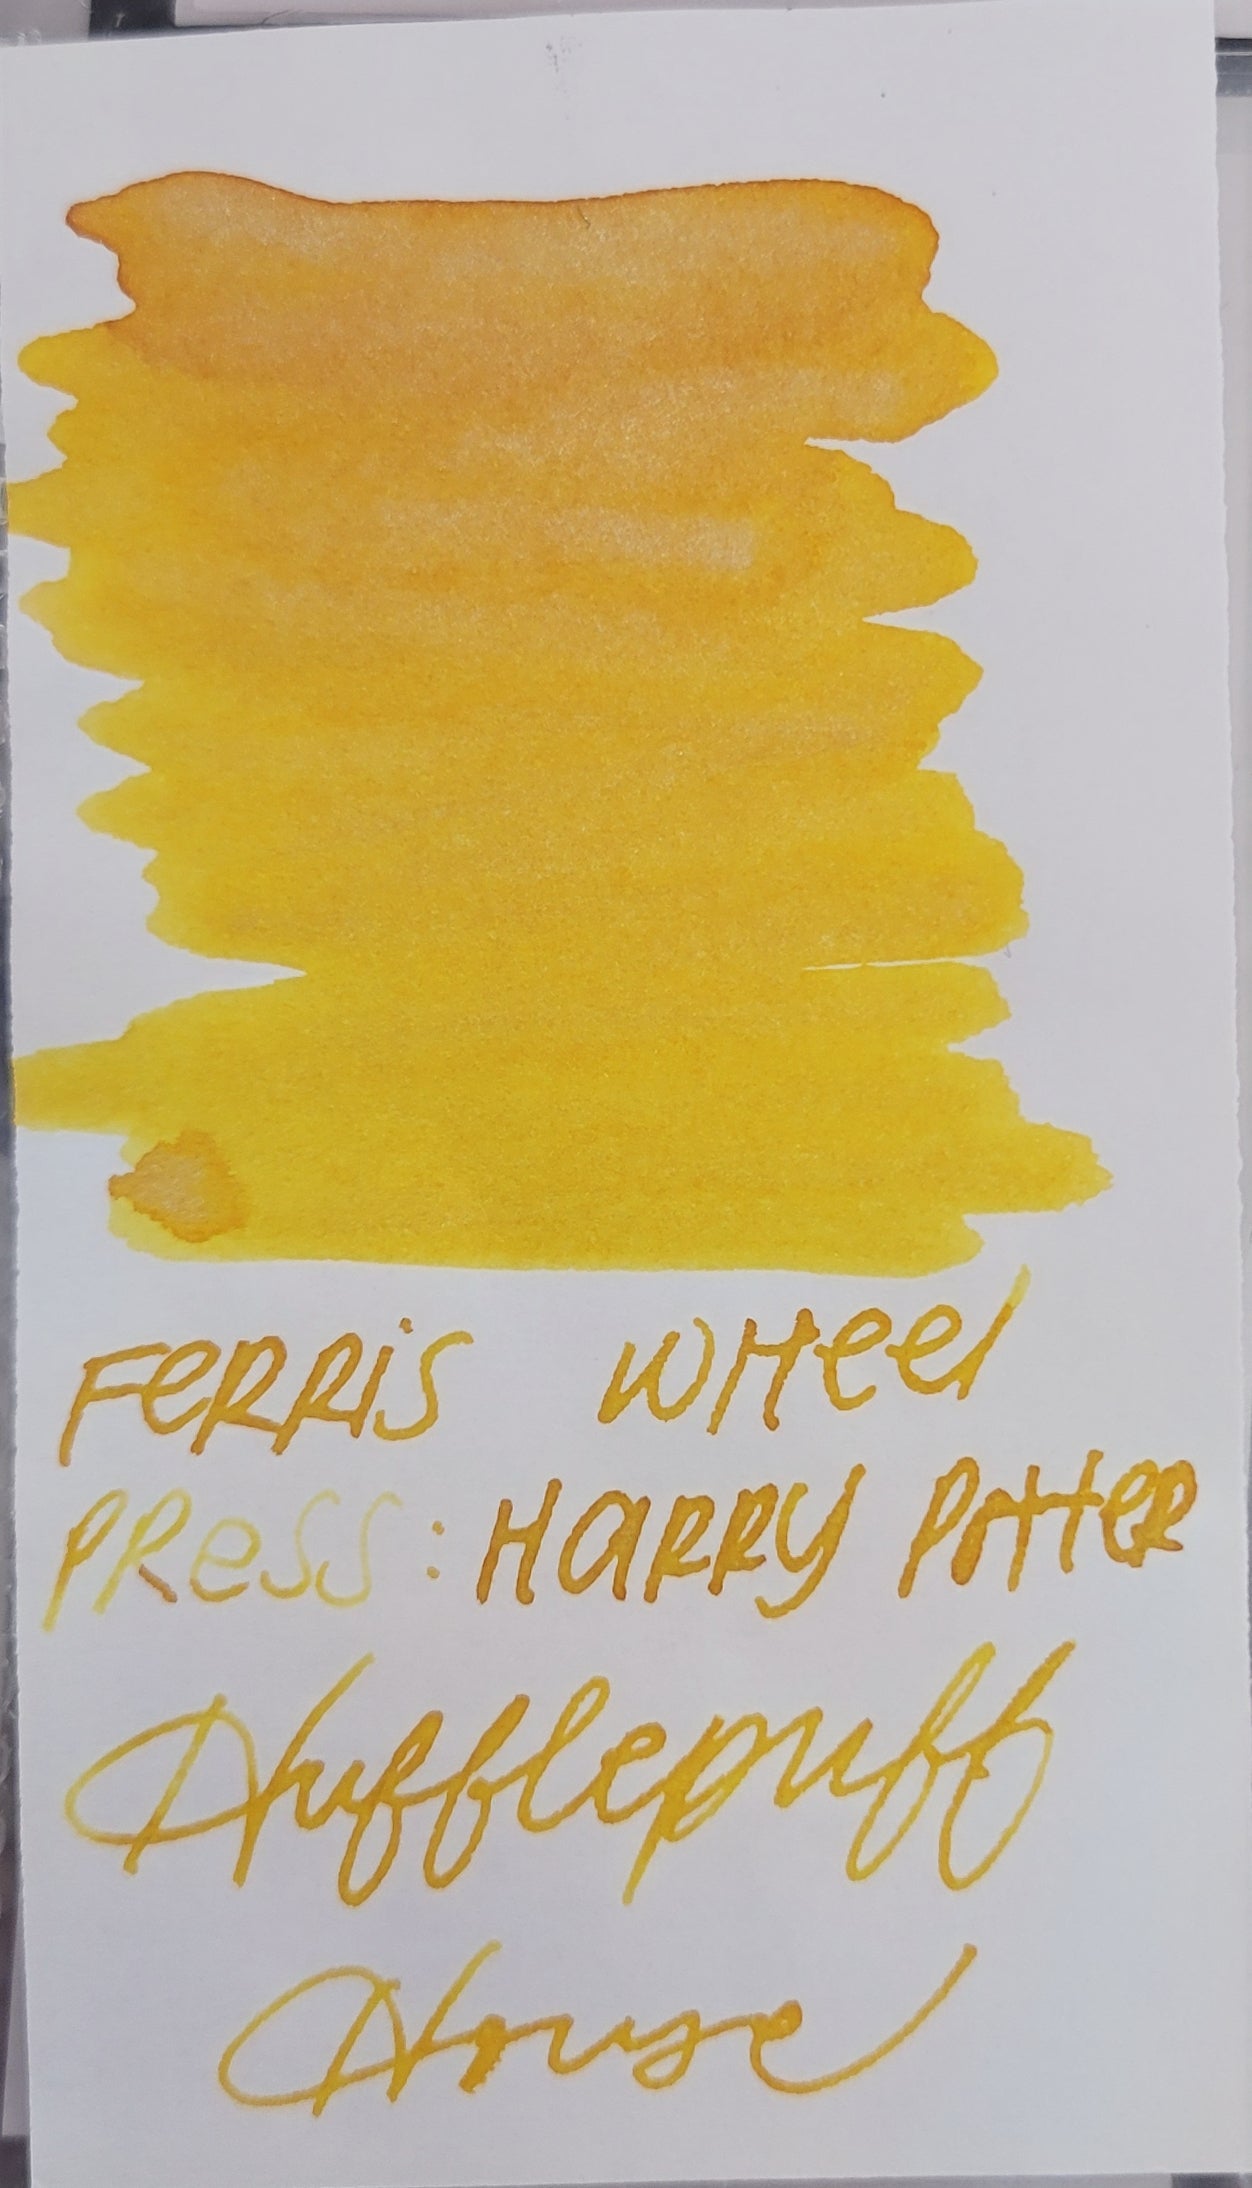 FeRRis WHeel
PRess: HaRRy PotteR
Hufflepuff
House